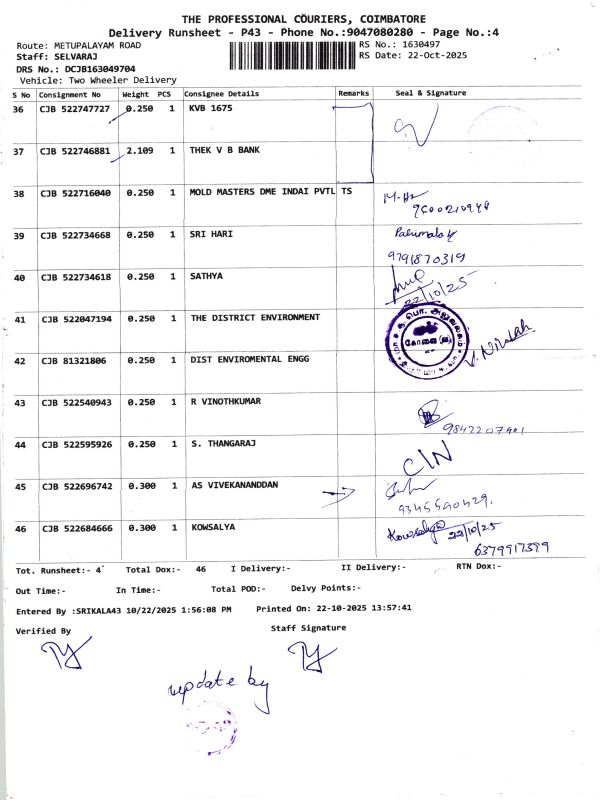 THE PROFESSIONAL COURIERS, COIMBATORE
Delivery Runsheet - P43 - Phone No.:9047080280 - Page No.:4
Route: METUPALAYAM ROAD RS No.: 1630497
Staff: SELVARAJ RS Date: 22-Oct-2025
DRS No.: DCJB163049704
Vehicle: Two Wheeler Delivery
S No Consignment No Weight PCS Consignee Details Remarks Seal & Signature
36 CJB 522747727 0.250 1 KVB 1675
37 CJB 522746881 2.109 1 THEK V B BANK
38 CJB 522716040 0.250 1 MOLD MASTERS DME INDAI PVTL TS
9600210948
39 CJB 522734668 0.250 1 SRI HARI Parimala
9791870319
40 CJB 522734618 0.250 1 SATHYA
22/10/25
41 CJB 522047194 0.250 1 THE DISTRICT ENVIRONMENT
கோவை
42 CJB 81321806 0.250 1 DIST ENVIROMENTAL ENGG
43 CJB 522540943 0.250 1 R VINOTHKUMAR
9842207401
44 CJB 522595926 0.250 1 S. THANGARAJ C/N
45 CJB 522696742 0.300 1 AS VIVEKANANDDAN
9345590429.
46 CJB 522684666 0.300 1 KOWSALYA Kowsalya 22/10/25
6379917399
Tot. Runsheet:- 4 Total Dox:- 46 I Delivery:- II Delivery:- RTN Dox:-
Out Time:- In Time:- Total POD:- Delvy Points:-
Entered By :SRIKALA43 10/22/2025 1:56:08 PM Printed On: 22-10-2025 13:57:41
Verified By Staff Signature
update by